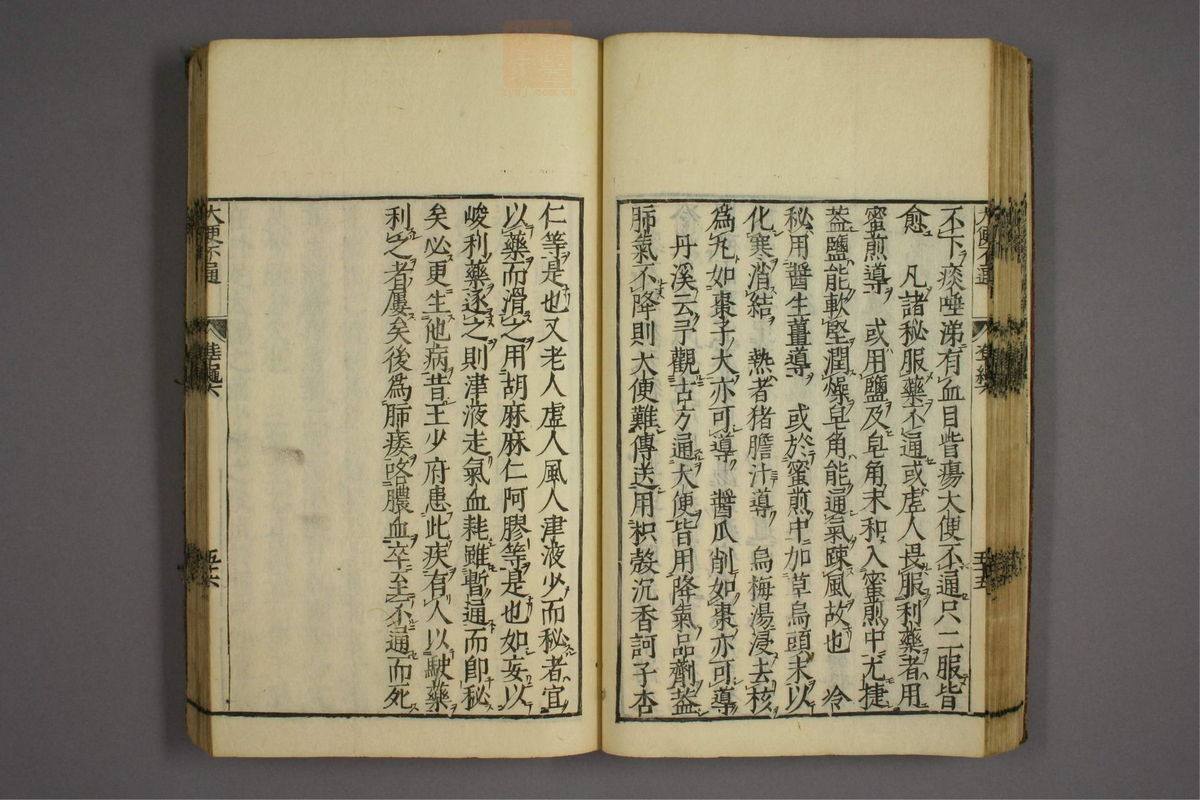 不下痰唾涕有血目眥瘍大便不通只二服皆
愈　凡諸秘服藥不通或虛人畏服利藥者用
蜜煎導　或用鹽及皂角末和入蜜煎中尤捷
蓋鹽能軟堅潤燥皂角能通氣疎風故也　冷
秘用醬生薑導　或於蜜煎中加草烏頭末以
化寒消結　熱者猪膽汁導　烏梅湯浸去核
爲丸如棗子大亦可導　醬瓜削如棗亦可導
丹溪云予觀古方通大便皆用降氣品劑蓋
肺氣不降則大便難傳送用枳殼沉香訶子杏
大便不通
五十五
仁等是也又老人虛人風人津液少而秘者宜
以藥而滑之用胡麻麻仁阿膠等是也如妄以
峻利藥逐之則津液走氣血耗雖暫通而即秘
矣必更生他病昔王少府患此疾有人以駛藥
利之者屢矣後爲肺痿咯膿血卒至不通而死
大便不通
五十六